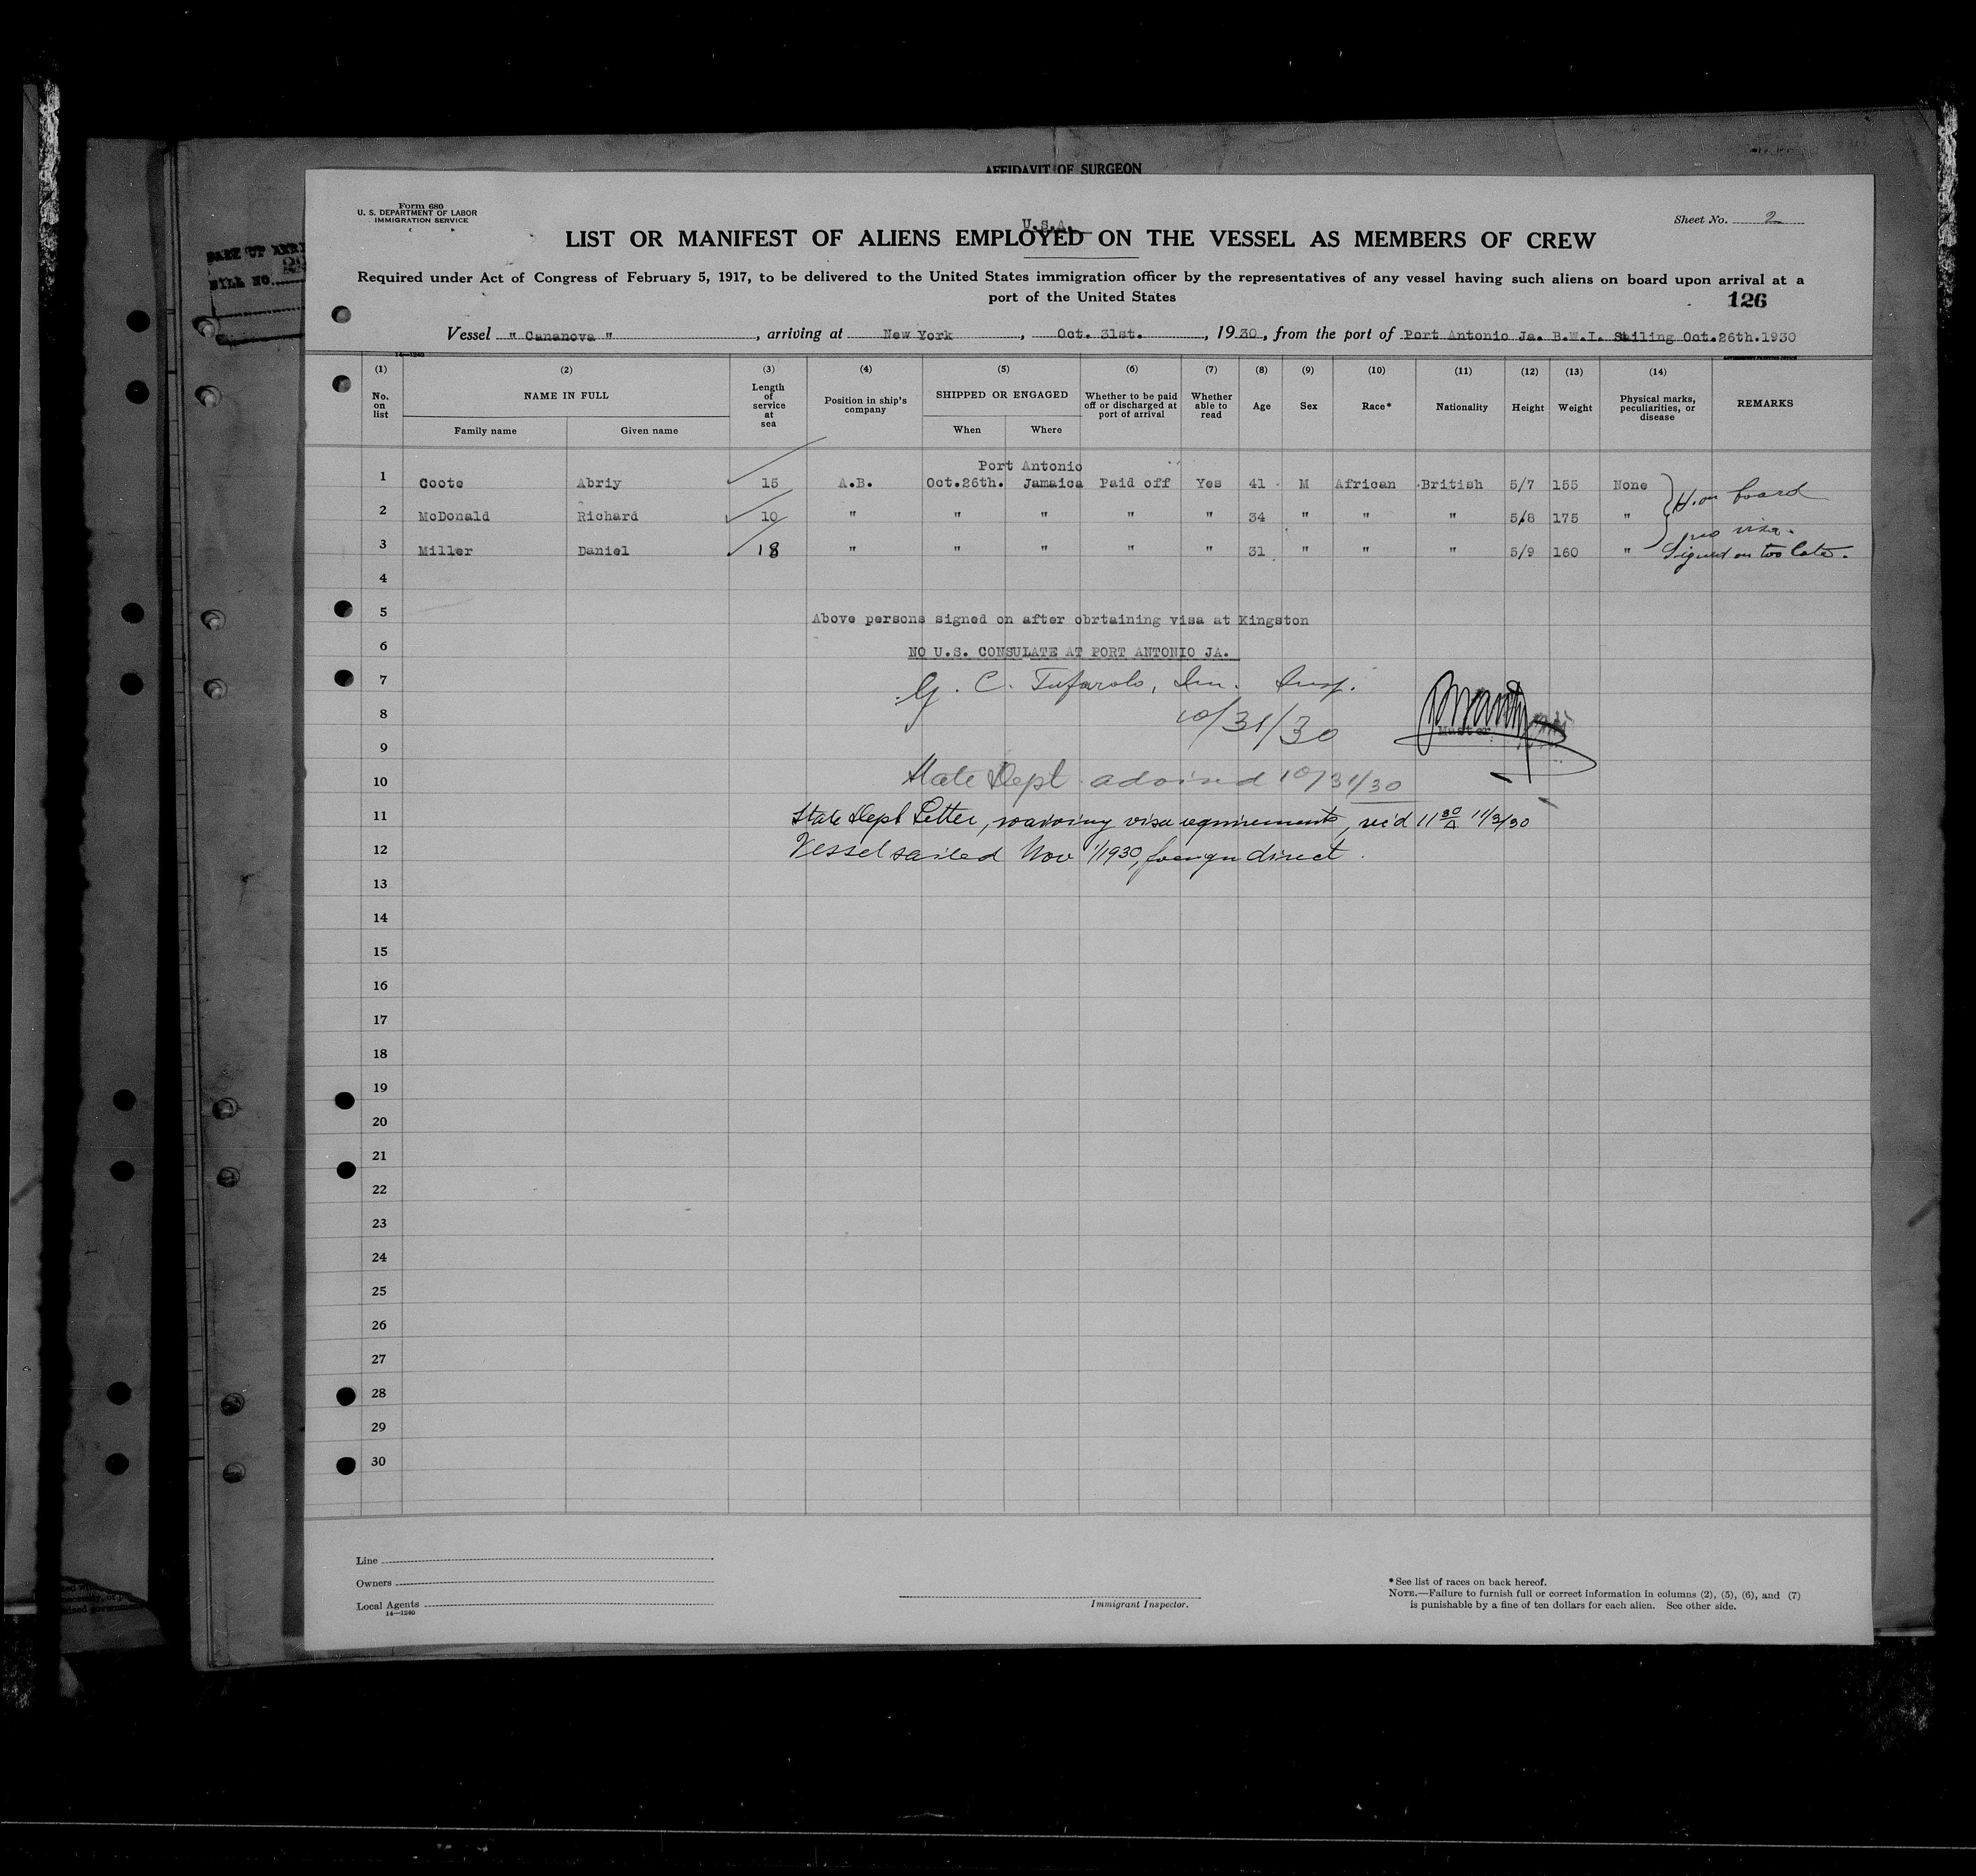 AFFIDAVIT OF SURGEON
Form 680
U. S. DEPARTMENT OF LABOR
IMMIGRATION SERVICE
U.S.A.
Sheet No. 2
LIST OR MANIFEST OF ALIENS EMPLOYED ON THE VESSEL AS MEMBERS OF CREW
Required under Act of Congress of February 5, 1917, to be delivered to the United States immigration officer by the representatives of any vessel having such aliens on board upon arrival at a
port of the United States
126
Vessel " Cananova " , arriving at New York , Oct. 31st. , 1930 , from the port of Port Antonio Ja. B.W.I. Sailing Oct.26th.1930
14—1240
(1) (2) (3) (4) (5) (6) (7) (8) (9) (10) (11) (12) (13) (14)
No. on list NAME IN FULL Length of service at sea Position in ship's company SHIPPED OR ENGAGED Whether to be paid off or discharged at port of arrival Whether able to read Age Sex Race* Nationality Height Weight Physical marks, peculiarities, or disease REMARKS
Family name Given name When Where
Port Antonio
1 Coote Abriy 15 A.B. Oct.26th. Jamaica Paid off Yes 41 M African British 5/7 155 None H. on board
2 McDonald Richard 10 " " " " " 34 " " " 5/8 175 " no visa.
3 Miller Daniel 18 " " " " " 31 " " " 5/9 160 " Signed on too late.
4
5 Above persons signed on after obrtaining visa at Kingston
6 NO U.S. CONSULATE AT PORT ANTONIO JA.
7 G. C. Tufarolo, Im. Insp.
8 10/31/30
Master
9
10 State Dept advised 10/31/30
11 State Dept Letter, waiving visa requirements, rec'd 11 30 A 11/3/30
12 Vessel sailed Nov 1/1930, foreign direct.
13
14
15
16
17
18
19
20
21
22
23
24
25
26
27
28
29
30
Line
Owners
Local Agents
14—1240
Immigrant Inspector.
*See list of races on back hereof.
NOTE.—Failure to furnish full or correct information in columns (2), (5), (6), and (7)
is punishable by a fine of ten dollars for each alien. See other side.